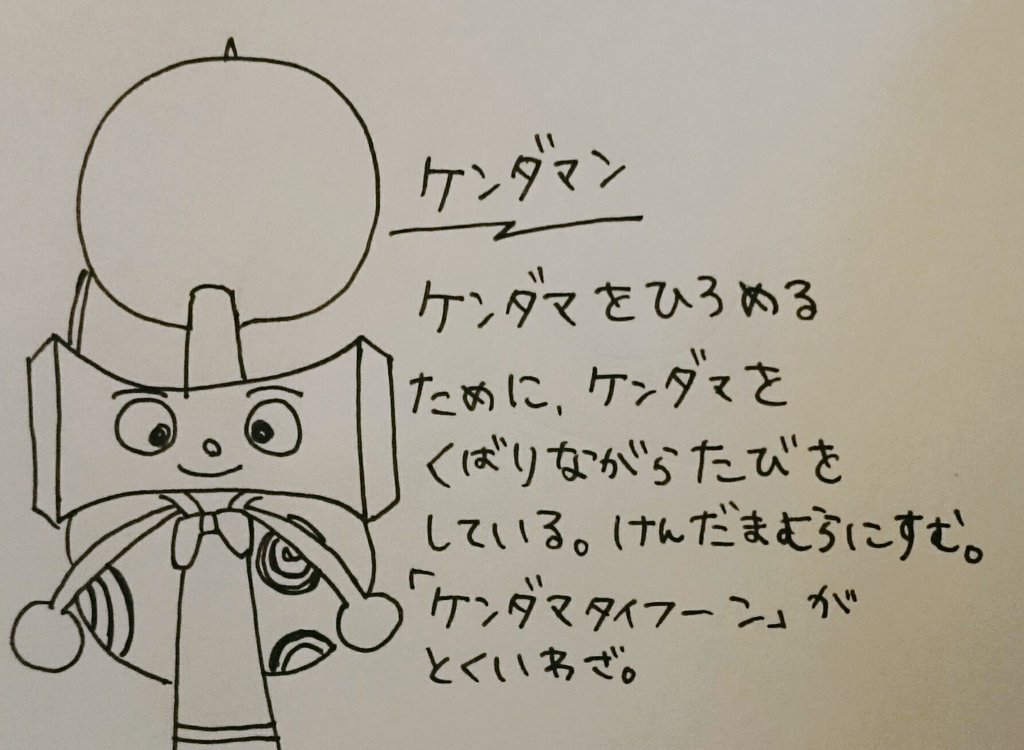 ケンダマン
ケンダマをひろめる
ために、ケンダマを
くばりながらたびを
している。けんだまむらにすむ。
「ケンダマタイフーン」が
とくいわざ。